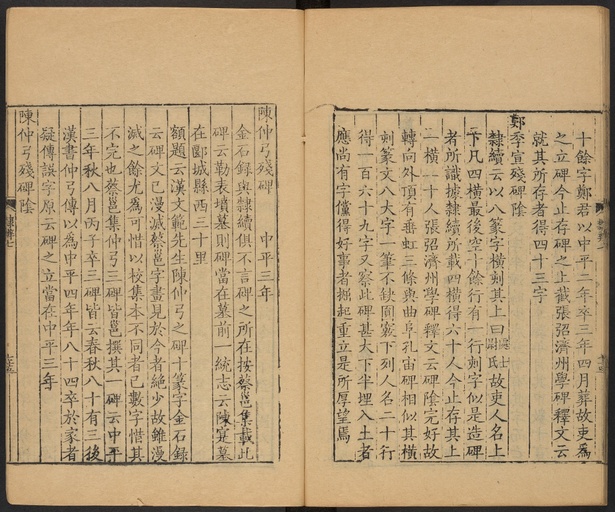 十餘字鄭君以中平二年卒三年四月葬故吏爲
之立碑今止存碑之上截張弨濟州學碑釋文云
就其所存者得四十三字
鄭季宣殘碑陰
隸續云以八篆字橫刻其上曰故吏人名上
下凡四橫最後空十餘行有一行刺字似是造碑
者所識據隸續所載四橫得六十人今止存其上
一橫一十人張弨濟州學碑釋文云碑陰完好故
轉向外頂有垂虹三條與曲阜孔宙碑相似其橫
刺篆文八大字一筆不缺圊竅下列人名二十行
得一百六十九字又察此碑甚大下半埋入土者
應尚有字儻得好事者掘起重立是所厚望焉
陳仲弓殘碑 中平三年
金石錄與隸續俱不言碑之所在按蔡邕集載此
碑云勒表墳墓則碑當在墓前一統志云陳寔墓
在郾城縣西三十里
額題云漢文範先生陳仲弓之碑十篆字金石錄
云碑文已漫滅蔡邕字畫見於今者絕少故雖漫
滅之餘尤爲可惜以校集本不同者已數字惜其
不完也蔡邕集仲弓三碑皆邕撰其一碑云中平
三年秋八月丙子卒三碑皆云春秋八十有三後
漢書仲弓傳以爲中平四年年八十四卒於家者
疑傳誤字原云碑之立當在中平三年
陳仲弓殘碑陰